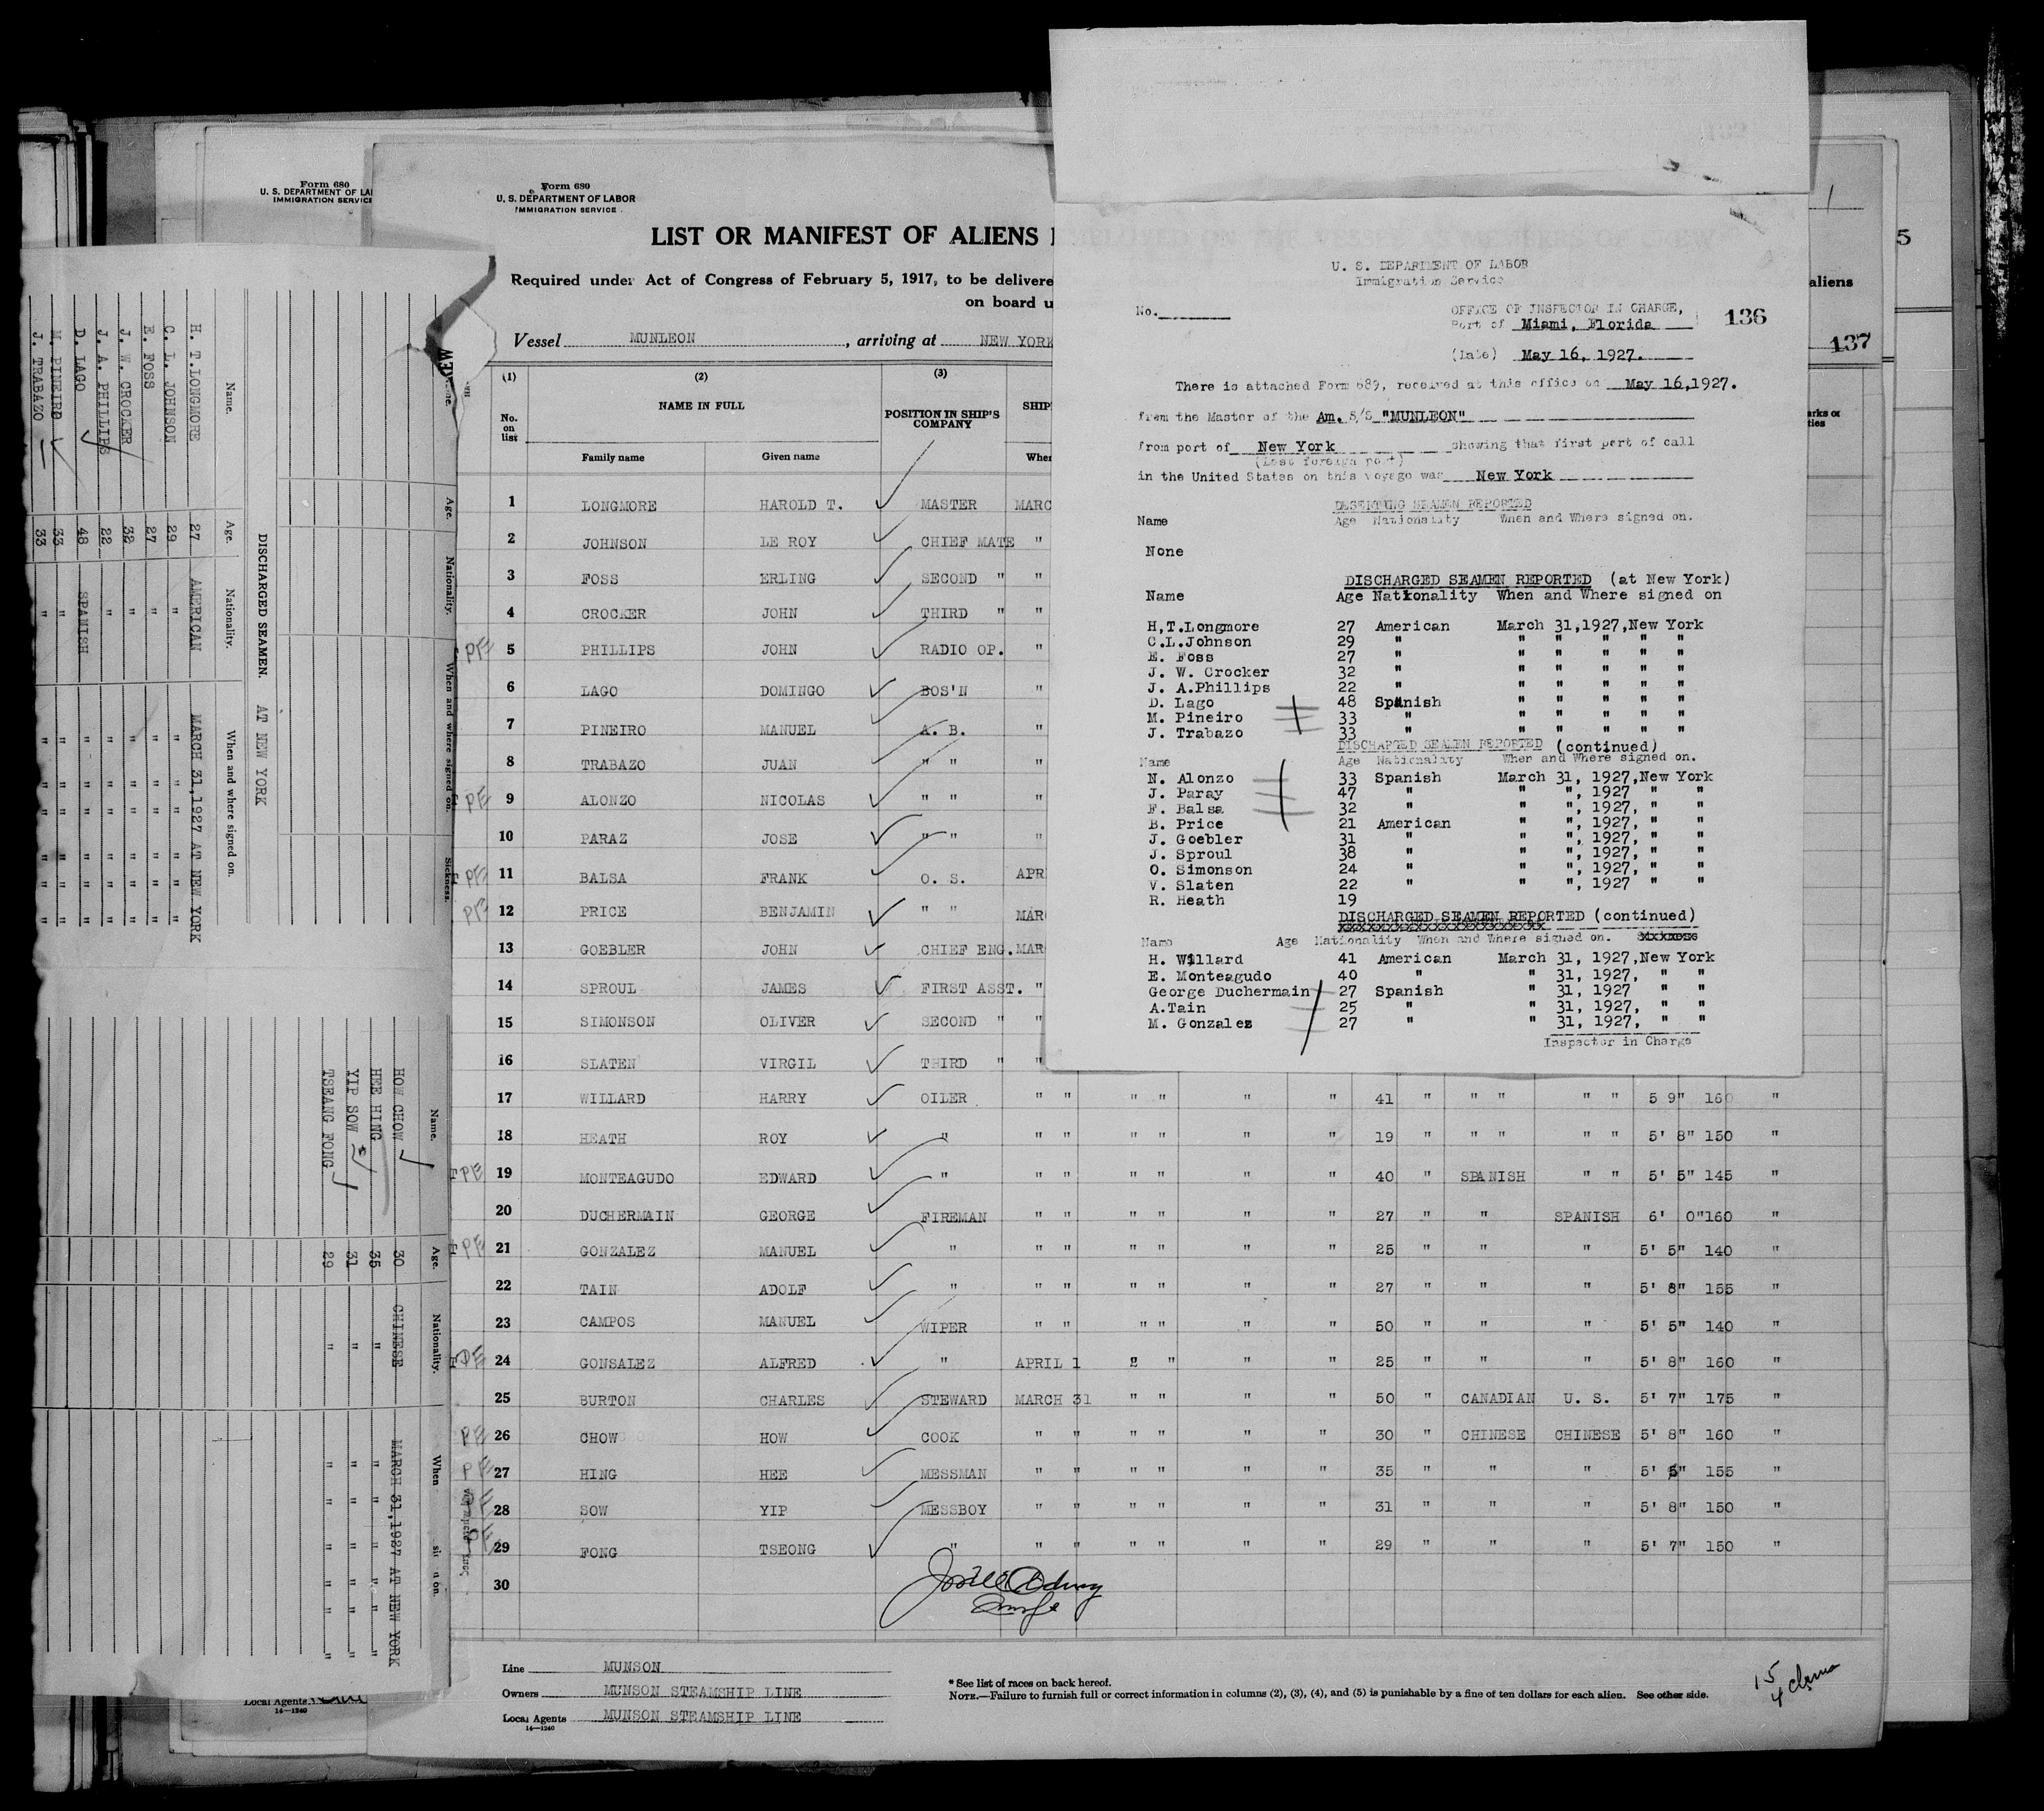 Form 680
U. S. DEPARTMENT OF LA
IMMIGRATION SERVICE
Form 680
U. S. DEPARTMENT OF LABOR
IMMIGRATION SERVICE
LIST OR MANIFEST OF ALIENS
Required under Act of Congress of February 5, 1917, to be delivere
on board u
aliens
5
137
Vessel MUNLEON , arriving at NEW YORK
(1) (2) (3)
No. on list NAME IN FULL POSITION IN SHIP'S COMPANY SHIP
Family name Given name Wher
1 LONGMORE HAROLD T. MASTER MARC
2 JOHNSON LE ROY CHIEF MATE "
3 FOSS ERLING SECOND " "
4 CROCKER JOHN THIRD " "
PE 5 PHILLIPS JOHN RADIO OP. "
6 LAGO DOMINGO BOS'N "
7 PINEIRO MANUEL A. B. "
8 TRABAZO JUAN " " "
PE 9 ALONZO NICOLAS " " "
10 PARAZ JOSE " " "
PE 11 BALSA FRANK O. S. APR
PE 12 PRICE BENJAMIN " " MAR
13 GOEBLER JOHN CHIEF ENG. MAR
14 SPROUL JAMES FIRST ASST. "
15 SIMONSON OLIVER SECOND " "
16 SLATEN VIRGIL THIRD " "
17 WILLARD HARRY OILER " " " " " " 41 " " " " " 5 9" 160 "
18 HEATH ROY " " " " " " " 19 " " " " " 5' 8" 150 "
PE 19 MONTEAGUDO EDWARD " " " " " " " 40 " SPANISH " " 5' 5" 145 "
20 DUCHERMAIN GEORGE FIREMAN " " " " " " 27 " " SPANISH 6' 0" 160 "
PE 21 GONZALEZ MANUEL " " " " " " " 25 " " " 5' 5" 140 "
22 TAIN ADOLF " " " " " " " 27 " " " 5' 8" 155 "
23 CAMPOS MANUEL WIPER " " " " " " 50 " " " 5' 5" 140 "
PE 24 GONSALEZ ALFRED " APRIL 1 " " " " 25 " " " 5' 8" 160 "
25 BURTON CHARLES STEWARD MARCH 31 " " " " 50 " CANADIAN U. S. 5' 7" 175 "
PE 26 CHOW HOW COOK " " " " " " 30 " CHINESE CHINESE 5' 8" 160 "
PE 27 HING HEE MESSMAN " " " " " " 35 " " " 5' 5" 155 "
PE 28 SOW YIP MESSBOY " " " " " " 31 " " " 5' 8" 150 "
PE 29 FONG TSEONG " " " " " " " 29 " " " 5' 7" 150 "
30
Line MUNSON
Owners MUNSON STEAMSHIP LINE
Local Agents MUNSON STEAMSHIP LINE
14—1240
* See list of races on back hereof.
NOTE.—Failure to furnish full or correct information in columns (2), (3), (4), and (5) is punishable by a fine of ten dollars for each alien. See other side.
15
4
Local Agents
14—1240
U. S. DEPARTMENT OF LABOR
Immigration Service
No.
OFFICE OF INSPECTOR IN CHARGE,
Port of Miami, Florida
136
(Date) May 16, 1927.
There is attached Form 689, received at this office on May 16,1927.
from the Master of the Am. S/S "MUNLEON"
from port of New York showing that first port of call
(Last foreign port)
in the United States on this voyage was New York
DESERTING SEAMEN REPORTED
Name Age Nationality When and Where signed on.
None
DISCHARGED SEAMEN REPORTED (at New York)
Name Age Nationality When and Where signed on
H,T.Longmore 27 American March 31,1927,New York
C.L.Johnson 29 " " " " " "
E. Foss 27 " " " " " "
J. W. Crocker 32 " " " " " "
J. A.Phillips 22 " " " " " "
D. Lago 48 Spanish " " " " "
M. Pineiro 33 " " " " " "
J. Trabazo 33 " " " " " "
DISCHARGED SEAMEN REPORTED (continued)
Name Age Nationality When and Where signed on.
N. Alonzo 33 Spanish March 31, 1927,New York
J. Paray 47 " " ", 1927 " "
F. Balsa 32 " " ", 1927, " "
B. Price 21 American " ", 1927, " "
J. Goebler 31 " " ", 1927, " "
J. Sproul 38 " " ", 1927, " "
O. Simonson 24 " " ", 1927, " "
V. Slaten 22 " " ", 1927 " "
R. Heath 19
DISCHARGED SEAMEN REPORTED (continued)
Name Age Nationality When and Where signed on.
H. Willard 41 American March 31, 1927,New York
E. Monteagudo 40 " " 31, 1927, " "
George Duchermain 27 Spanish " 31, 1927 " "
A.Tain 25 " " 31, 1927, " "
M. Gonzalez 27 " " 31, 1927, " "
Inspector in Charge
Age. Nationality. When and where signed on. Sickness.
DISCHARGED SEAMEN. AT NEW YORK
Name. Age. Nationality. When and where signed on.
H. T.LONGMORE 27 AMERICAN MARCH 31,1927 AT NEW YORK
C. L. JOHNSON 29 " " " " " " "
E. FOSS 27 " " " " " " "
J. W. CROCKER 32 " " " " " " "
J. A. PHILLIPS 22 " " " " " " "
D. LAGO 48 SPANISH " " " " " "
M. PINEIRO 33 " " " " " " "
J. TRABAZO 33 " " " " " " "
Name. Age. Nationality. When
HOW CHOW 30 CHINESE MARCH 31,1927 AT NEW YORK
HEE HING 35 " " " " " " "
YIP SOW 31 " " " " " " "
TSEANG FONG 29 " " " " " " "